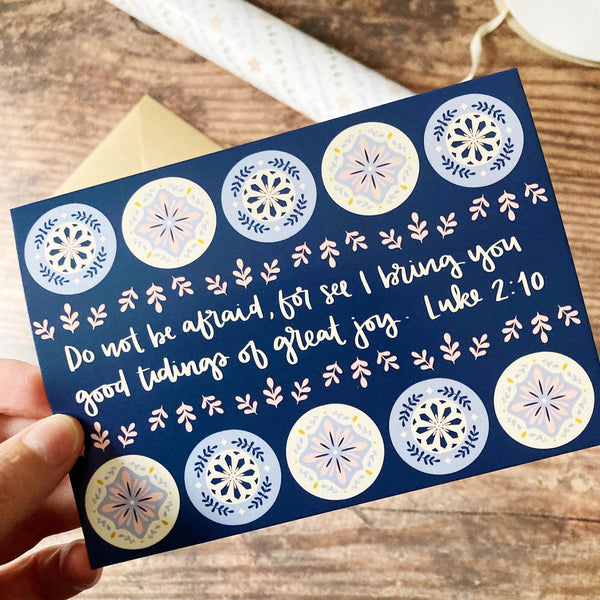 Do not be afraid, for see I bring you
good tidings of great joy. Luke 2:10